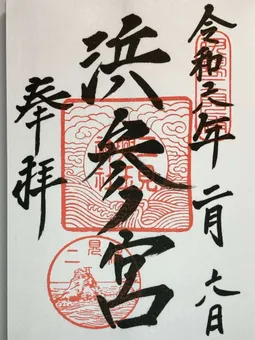 令和六年 二月 六日
浜参宮
奉拝
二見